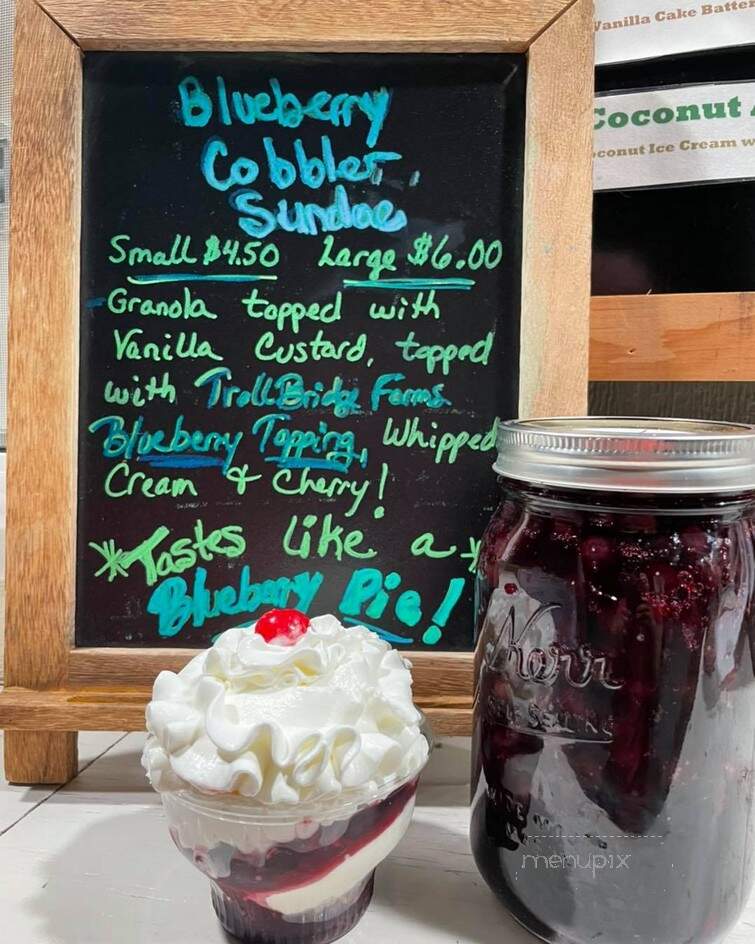 Blueberry
Cobbler
Sundae
Small $4.50 Large $6.00
Granola topped with
Vanilla Custard, topped
with TrollBridge Farms
Blueberry Topping, Whipped
Cream & Cherry!
*Tastes like a*
Blueberry Pie!
Vanilla Cake Batter
Coconut
Coconut Ice Cream w
Kerr
menupix